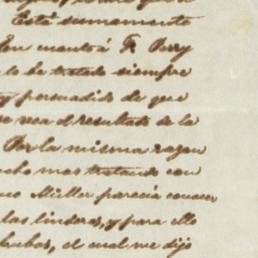 Está sumamente
En cuanto á F. Perry
lo he tratado siempre
y persuadido de que
sea el resultado de la
Por la misma razon
cho mas tratando con
Miller parecia conocer
las linderas, y para ello
el cual me dijo